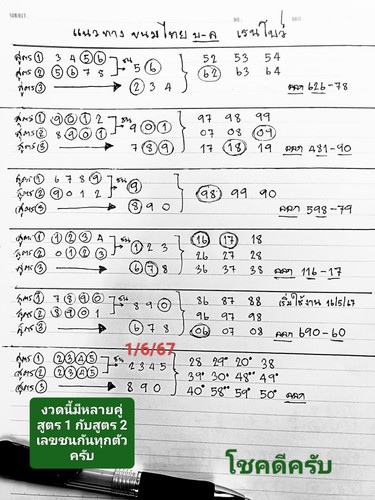 แนวทาง ขนมไทย บ-ล เรนโบว์
สูตร ① 3 4 ⑤ ⑥ ชน 5 ⑥ 52 53 54
สูตร ② ⑤ ⑥ 7 8 62 63 64
สูตร ③ ② 3 4 ออก 626-78
สูตร ① ⑨ ⓪ ① 2 ชน 9 ⓪ ① 97 98 99
สูตร ② 8 ⑨ ⓪ ① 07 08 09
สูตร ③ 7 ⑧ ⑨ 17 18 19 ออก 481-90
สูตร ① 6 7 8 ⑨ ชน ⑨
สูตร ② ⑨ 0 1 2 98 99 90
สูตร ③ ⑧ 9 0 ออก 598-79
สูตร ① ① ② ③ 4 ชน ① 2 3 16 17 18
สูตร ② 0 ① ② ③ 26 27 28
สูตร ③ ⑥ ⑦ 8 36 37 38 ออก 116-17
สูตร ① 7 ⑧ ⑨ ⓪ ชน 8 9 ⓪ 86 87 88 เริ่มใช้งาน 16/5/67
สูตร ② ⑧ ⑨ ⓪ 1 96 97 98
สูตร ③ ⑥ 7 8 06 07 08 ออก 690-60
1/6/67
สูตร ① ② ③ ④ ⑤ ชน 2 3 4 5 28 29° 20° 38
สูตร ② ② ③ ④ ⑤ 39° 30° 48°° 49°
สูตร ③ 8 9 0 40° 58°° 59° 50° ออก
งวดนี้มีหลายคู่
สูตร 1 กับสูตร 2
เลขชนกันทุกตัว
ครับ
โชคดีครับ